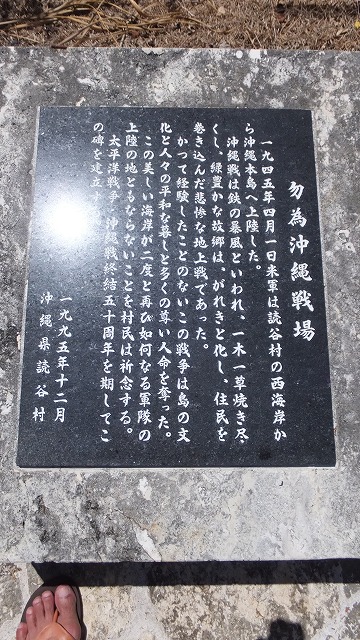 勿為沖縄戦場
一九四五年四月一日米軍は読谷村の西海岸か
ら沖縄本島へ上陸した。
沖縄戦は鉄の暴風といわれ、一木一草焼き尽
くし、緑豊かな故郷は、がれきと化し、住民を
巻き込んだ悲惨な地上戦であった。
かつて経験したことのないこの戦争は島の文
化と人々の平和な暮しと多くの尊い人命を奪った。
この美しい海岸が二度と再び如何なる軍隊の
上陸の地ともならないことを村民は祈念する。
太平洋戦争・沖縄戦終結五十周年を期してこ
の碑を建立す
一九九五年十二月
沖縄県読谷村